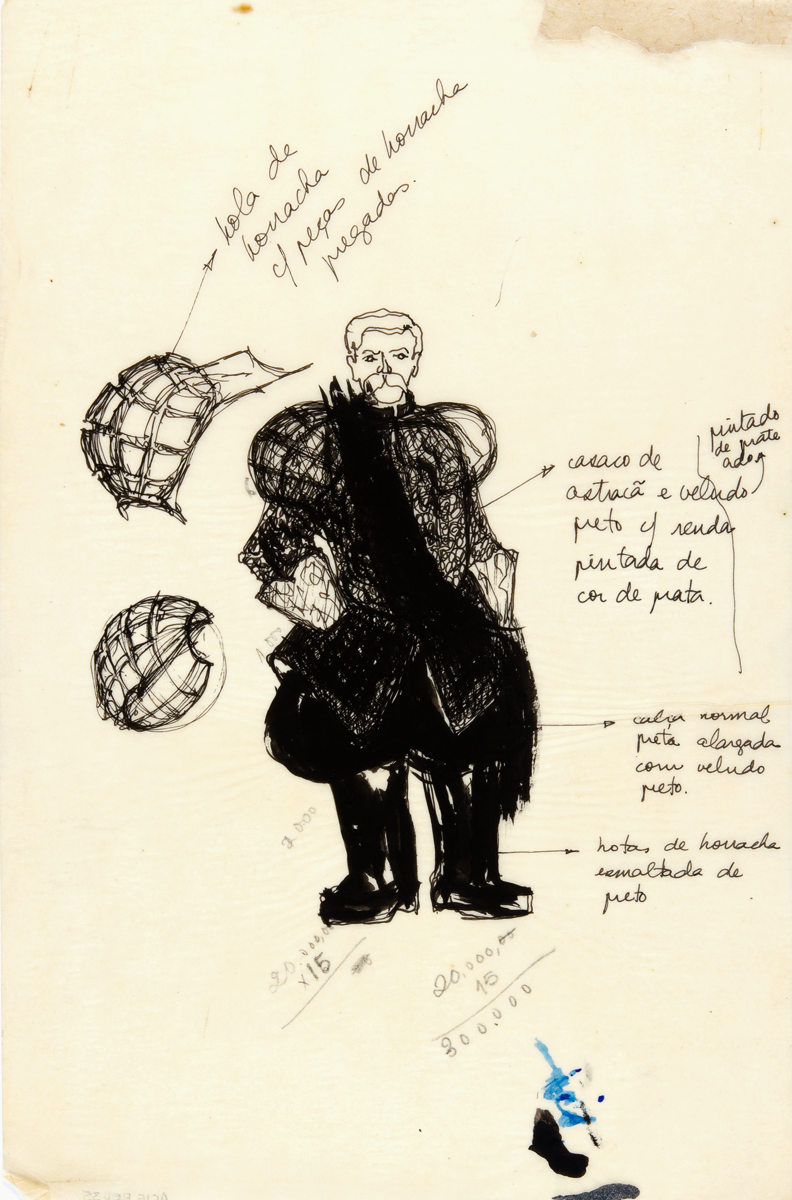 bola de
borracha
c/ peças de borracha
pregadas.
pintado
de prate
ador
casaco de
astracã e veludo
preto c/ renda
pintada de
cor de prata.
calça normal
preta alargada
com veludo
preto.
botas de borracha
esmaltada de
preto
1.000
2.000
20.000,00
x15
20.000,00
15
300.000